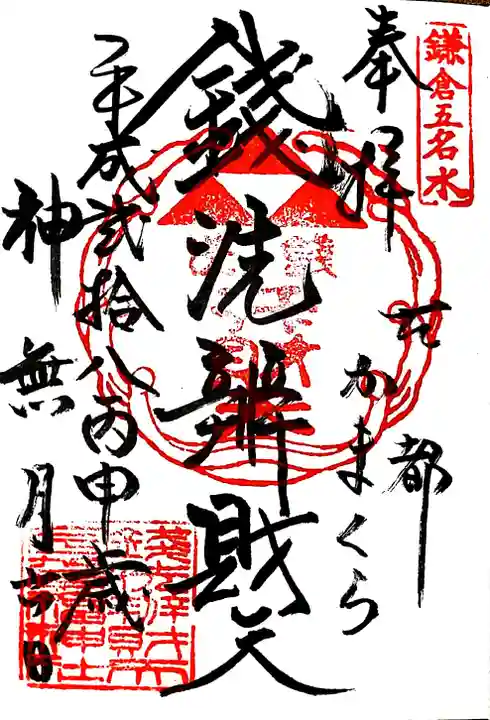 鎌倉五名水
奉拝
古都
かまくら
錢洗辨財天
平成弐拾八丙申歳
神無月 日